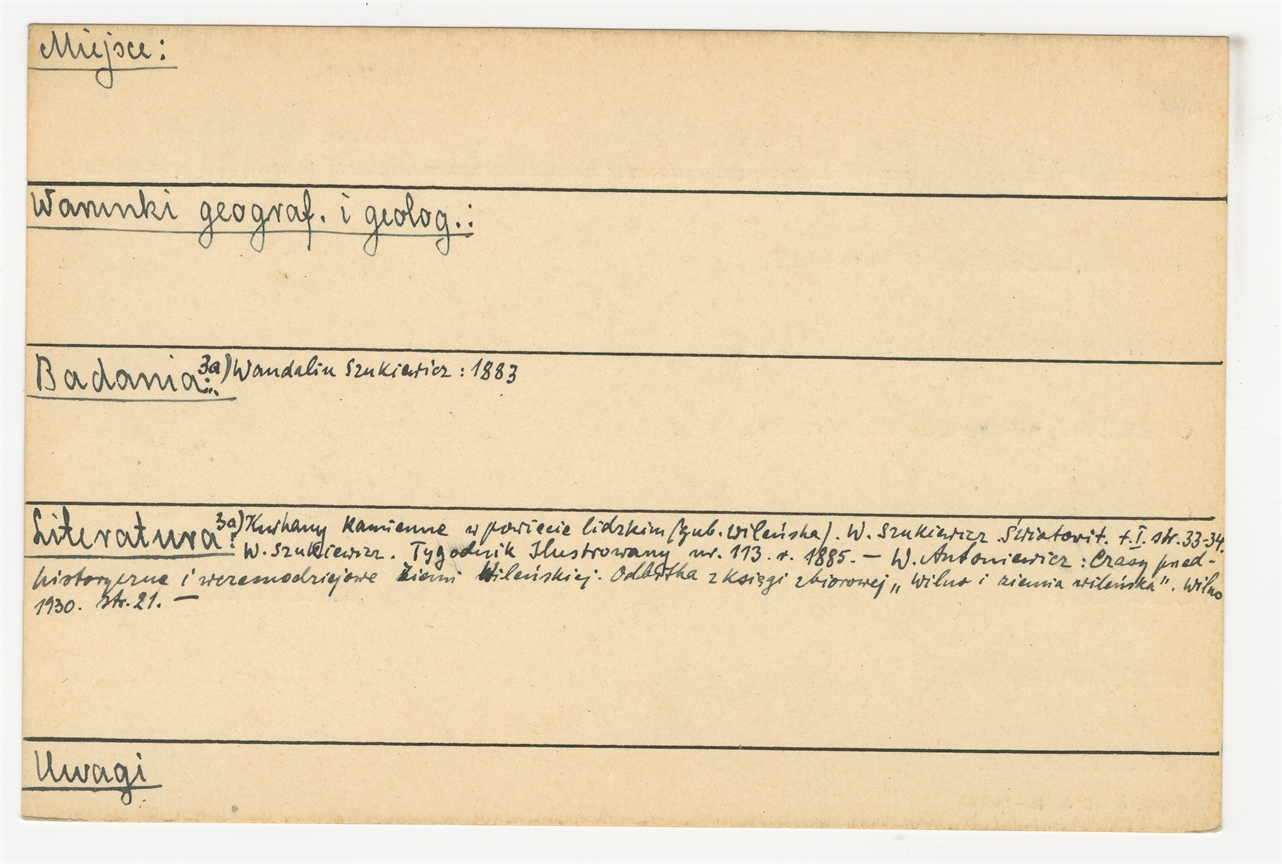 Miejsce:
Warunki geograf. i geolog.:
Badania: 3a) Wandalin Szukiewicz : 1883
Literatura: 3a) Kurhany kamienne w powiecie lidzkim (gub. wileńska). W. Szukiewicz Światovit. t. I. str. 33-34.
W. Szukiewicz. Tygodnik Ilustrowany nr. 113. r. 1885. — W. Antoniewicz : Czasy przed-
historyczne i wczesnodziejowe Ziemi Wileńskiej. Odbitka z księgi zbiorowej „Wilno i ziemia wileńska". Wilno
1930. str. 21. —
Uwagi